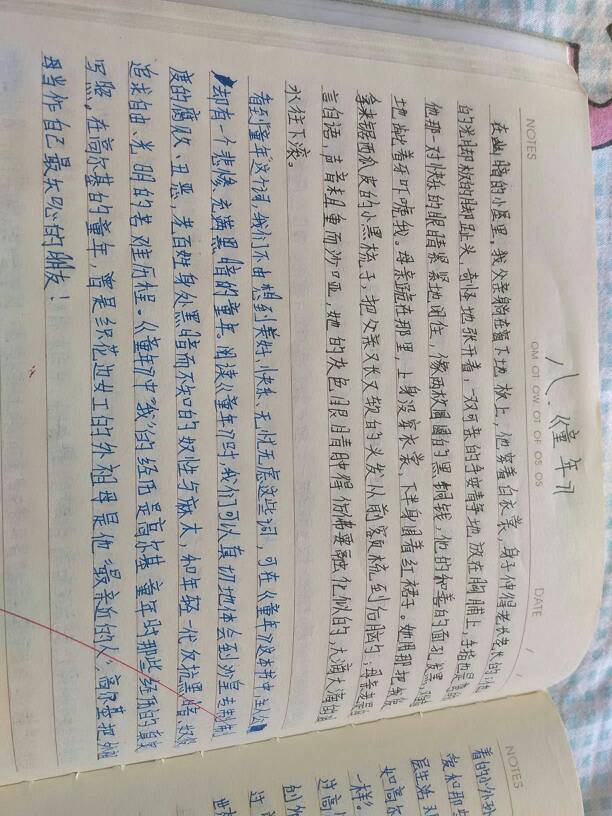 八、《童年》
NOTES
OM OT OW OT OF OS OS
DATE
在幽暗的小屋里,我父亲躺在窗下地板上,他穿着白衣裳,身子伸得老长老长的;他
的光脚板的脚趾头,奇怪地张开着,一双可亲的手安静地放在胸脯上,手指也是弯的
他那一对快乐的眼睛紧紧地闭住,像两枚圆圆的黑铜钱,他的和善的面孔发黑,
地龇着牙吓唬我。母亲跪在那里,上身没穿衣裳,下半身围着红裙子。她用那把
拿来锯西瓜皮的小黑梳子,把父亲又长又软的头发从前额梳到后脑勺;母亲老是
言自语,声音粗重而沙哑,她的灰色眼睛肿得仿佛要融化似的,大滴大滴的
水往下滚。
看到"童年"这个词,我们不由想到美好、快乐、无忧无虑这些词,可在《童年》这本书中主人公
却有一个悲惨、充满黑暗的童年。阅读《童年》时,我们可以真切地体会到沙皇专制制
度的腐败、丑恶,老百姓身处黑暗而不知的奴性与麻木,和年轻一代反抗黑暗
追求自由、光明的苦难历程。《童年》中"我"的经历是高尔基童年时那些经历的真实
写照,在高尔基的童年,曾是织花边女工的外祖母是他"最亲近的人",高尔基把外祖
母当作自己最知心的朋友!
NOTES
着的小外孙
爱和那些
层生活
如高尔
一样。
这高
创作
过